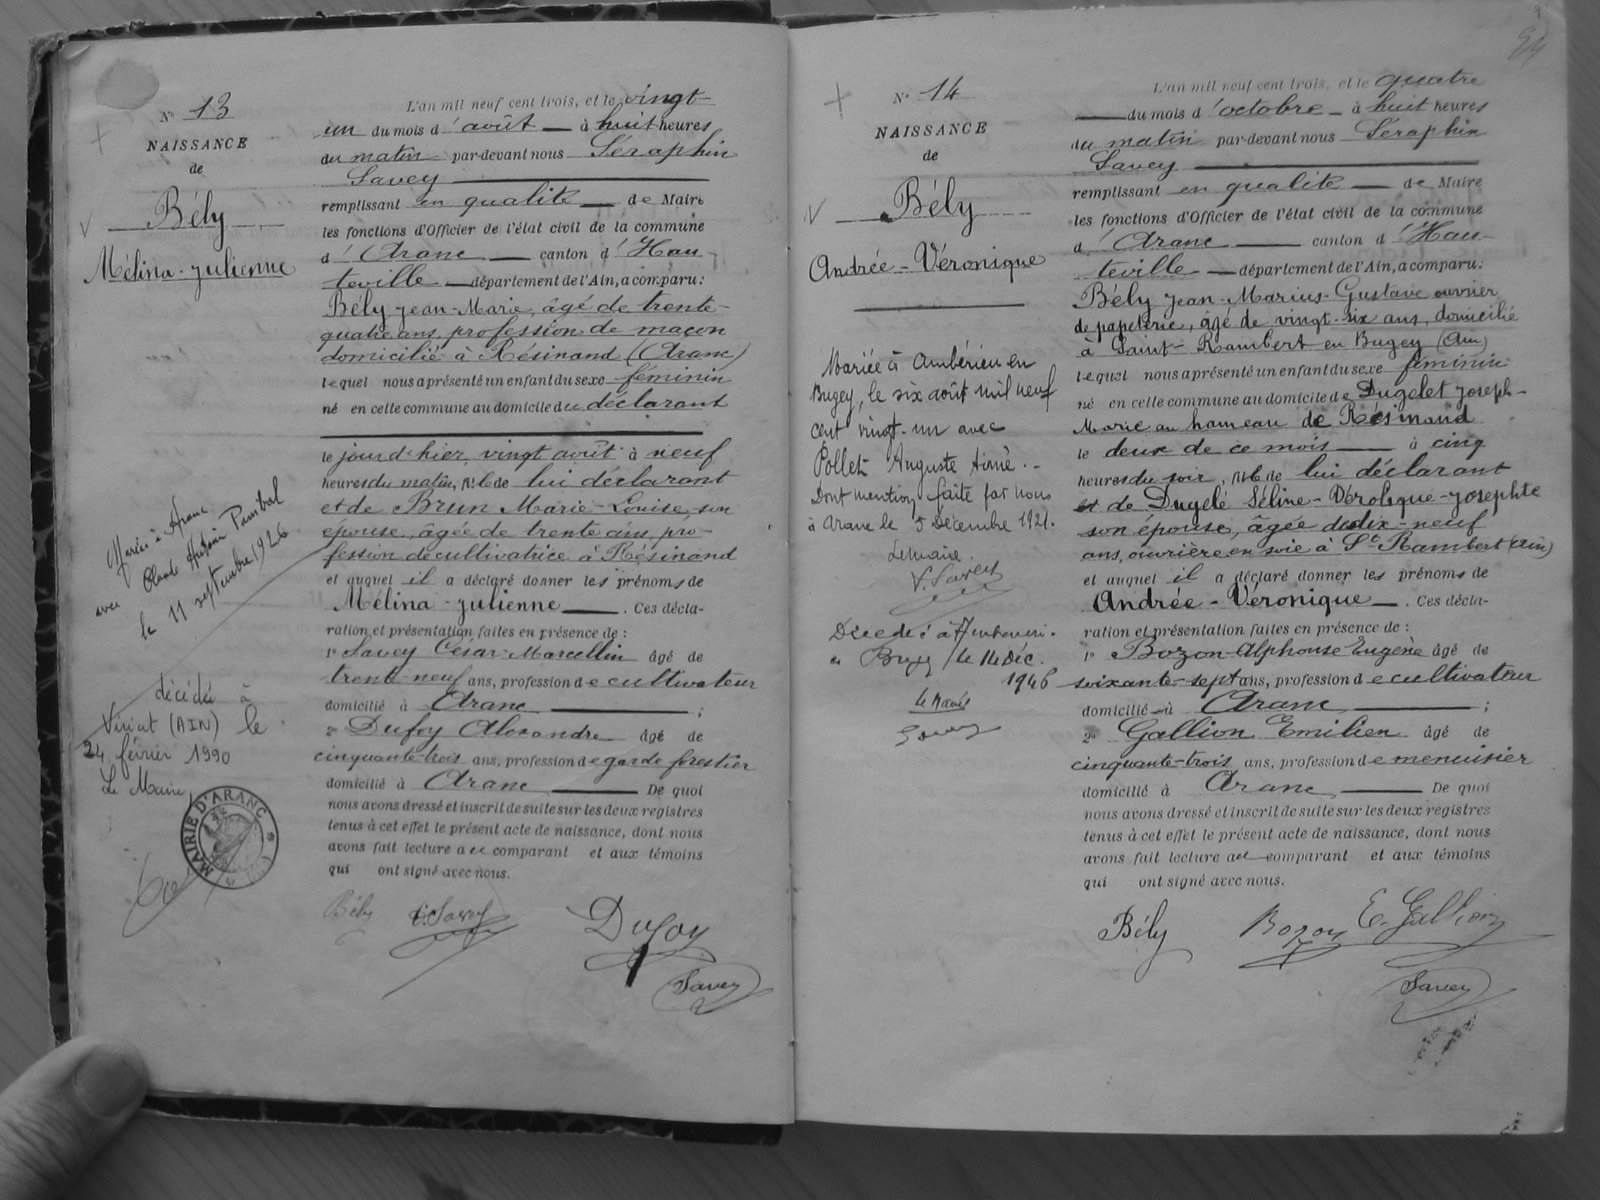 N° 13
NAISSANCE
de
Bély
Mélina-Julienne
Mariée à Aranc
avec
le 11 septembre 1926
décédée à
Viriat (AIN) le
24 février 1990
Le Maire,
MAIRIE D'ARANC
L'an mil neuf cent trois, et le vingt-
un du mois d'août à huit heures
du matin par-devant nous Séraphin
Savey
remplissant en qualité de Maire
les fonctions d'Officier de l'état civil de la commune
d'Aranc canton d'Hau-
teville département de l'Ain, a comparu:
Bély Jean-Marie, âgé de trente-
quatre ans, profession de maçon
domicilié à Résinand (Aranc)
lequel nous a présenté un enfant du sexe féminin
né en cette commune au domicile du déclarant
le jour d'hier, vingt août à neuf
heures du matin, né de lui déclarant
et de Brun Marie-Louise, son
épouse, âgée de trente ans, pro-
fession de cultivatrice à Résinand
et auquel il a déclaré donner les prénoms de
Mélina-Julienne. Ces décla-
ration et présentation faites en présence de :
1° Savey César-Marcellin âgé de
trente-neuf ans, profession de cultivateur
domicilié à Aranc ;
2° Dufoy Alexandre âgé de
cinquante-trois ans, profession de garde forestier
domicilié à Aranc De quoi
nous avons dressé et inscrit de suite sur les deux registres
tenus à cet effet le présent acte de naissance, dont nous
avons fait lecture au comparant et aux témoins
qui ont signé avec nous.
Bély C. Savey Dufoy
Savey
N° 14
NAISSANCE
de
Bély
Andrée-Véronique
Mariée à Ambérieu en
Bugey, le six août mil neuf
cent vingt-un avec
Pollet Auguste Aimé.-
Dont mention faite par nous
à Aranc le 5 Décembre 1921.
Le maire.
V. Savey
Décédée à Ambérieu.
en Bugey le 14 Déc.
1946
Le Maire
L'an mil neuf cent trois, et le quatre
du mois d'octobre à huit heures
du matin par-devant nous Séraphin
Savey
remplissant en qualité de Maire
les fonctions d'Officier de l'état civil de la commune
d'Aranc canton d'Hau-
teville département de l'Ain, a comparu:
Bély Jean-Marius-Gustave ouvrier
de papeterie, âgé de vingt-six ans, domicilié
à Saint-Rambert en Bugey (Ain)
lequel nous a présenté un enfant du sexe féminin
né en cette commune au domicile de Dugelet Joseph-
Marie au hameau de Résinand
le deux de ce mois à cinq
heures du soir, né de lui déclarant
et de Dugelé Séline-Véronique-Josephte
son épouse, âgée de dix-neuf
ans, ouvrière en soie à St-Rambert (Ain)
et auquel il a déclaré donner les prénoms de
Andrée-Véronique. Ces décla-
ration et présentation faites en présence de :
1° Bozon Alphonse Eugène âgé de
soixante-sept ans, profession de cultivateur
domicilié à Aranc ;
2° Gallion Emilien âgé de
cinquante-trois ans, profession de menuisier
domicilié à Aranc De quoi
nous avons dressé et inscrit de suite sur les deux registres
tenus à cet effet le présent acte de naissance, dont nous
avons fait lecture au comparant et aux témoins
qui ont signé avec nous.
Bély Bozon E. Gallion
Savey